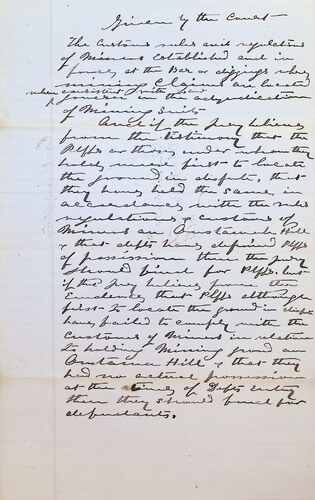 Given by the Court
The Customs rules and regulations
of Miners Established and in
force, at the Bar or diggings where
mining Claims are located
when consistent with law
govern in the adjudication
of Mining Suits
And if the Jury believe
from the testimony that the
Plffs or those under whom they
hold, were first to locate
the ground in dispute, that
they have held the same in
accordance with the rules
regulations & customs of
Miners on Hill
& that defts have Plffs
of possession then the jury
should find for Plffs. but
if the Jury believe from the
Evidence that Plffs although
first to locate the ground in dispute
have failed to comply with the
Customs of Miners in relation
to holding Mining ground on
Hill & that they
had no actual possession
at the time of Defts Entry
then they should find for
defendants.